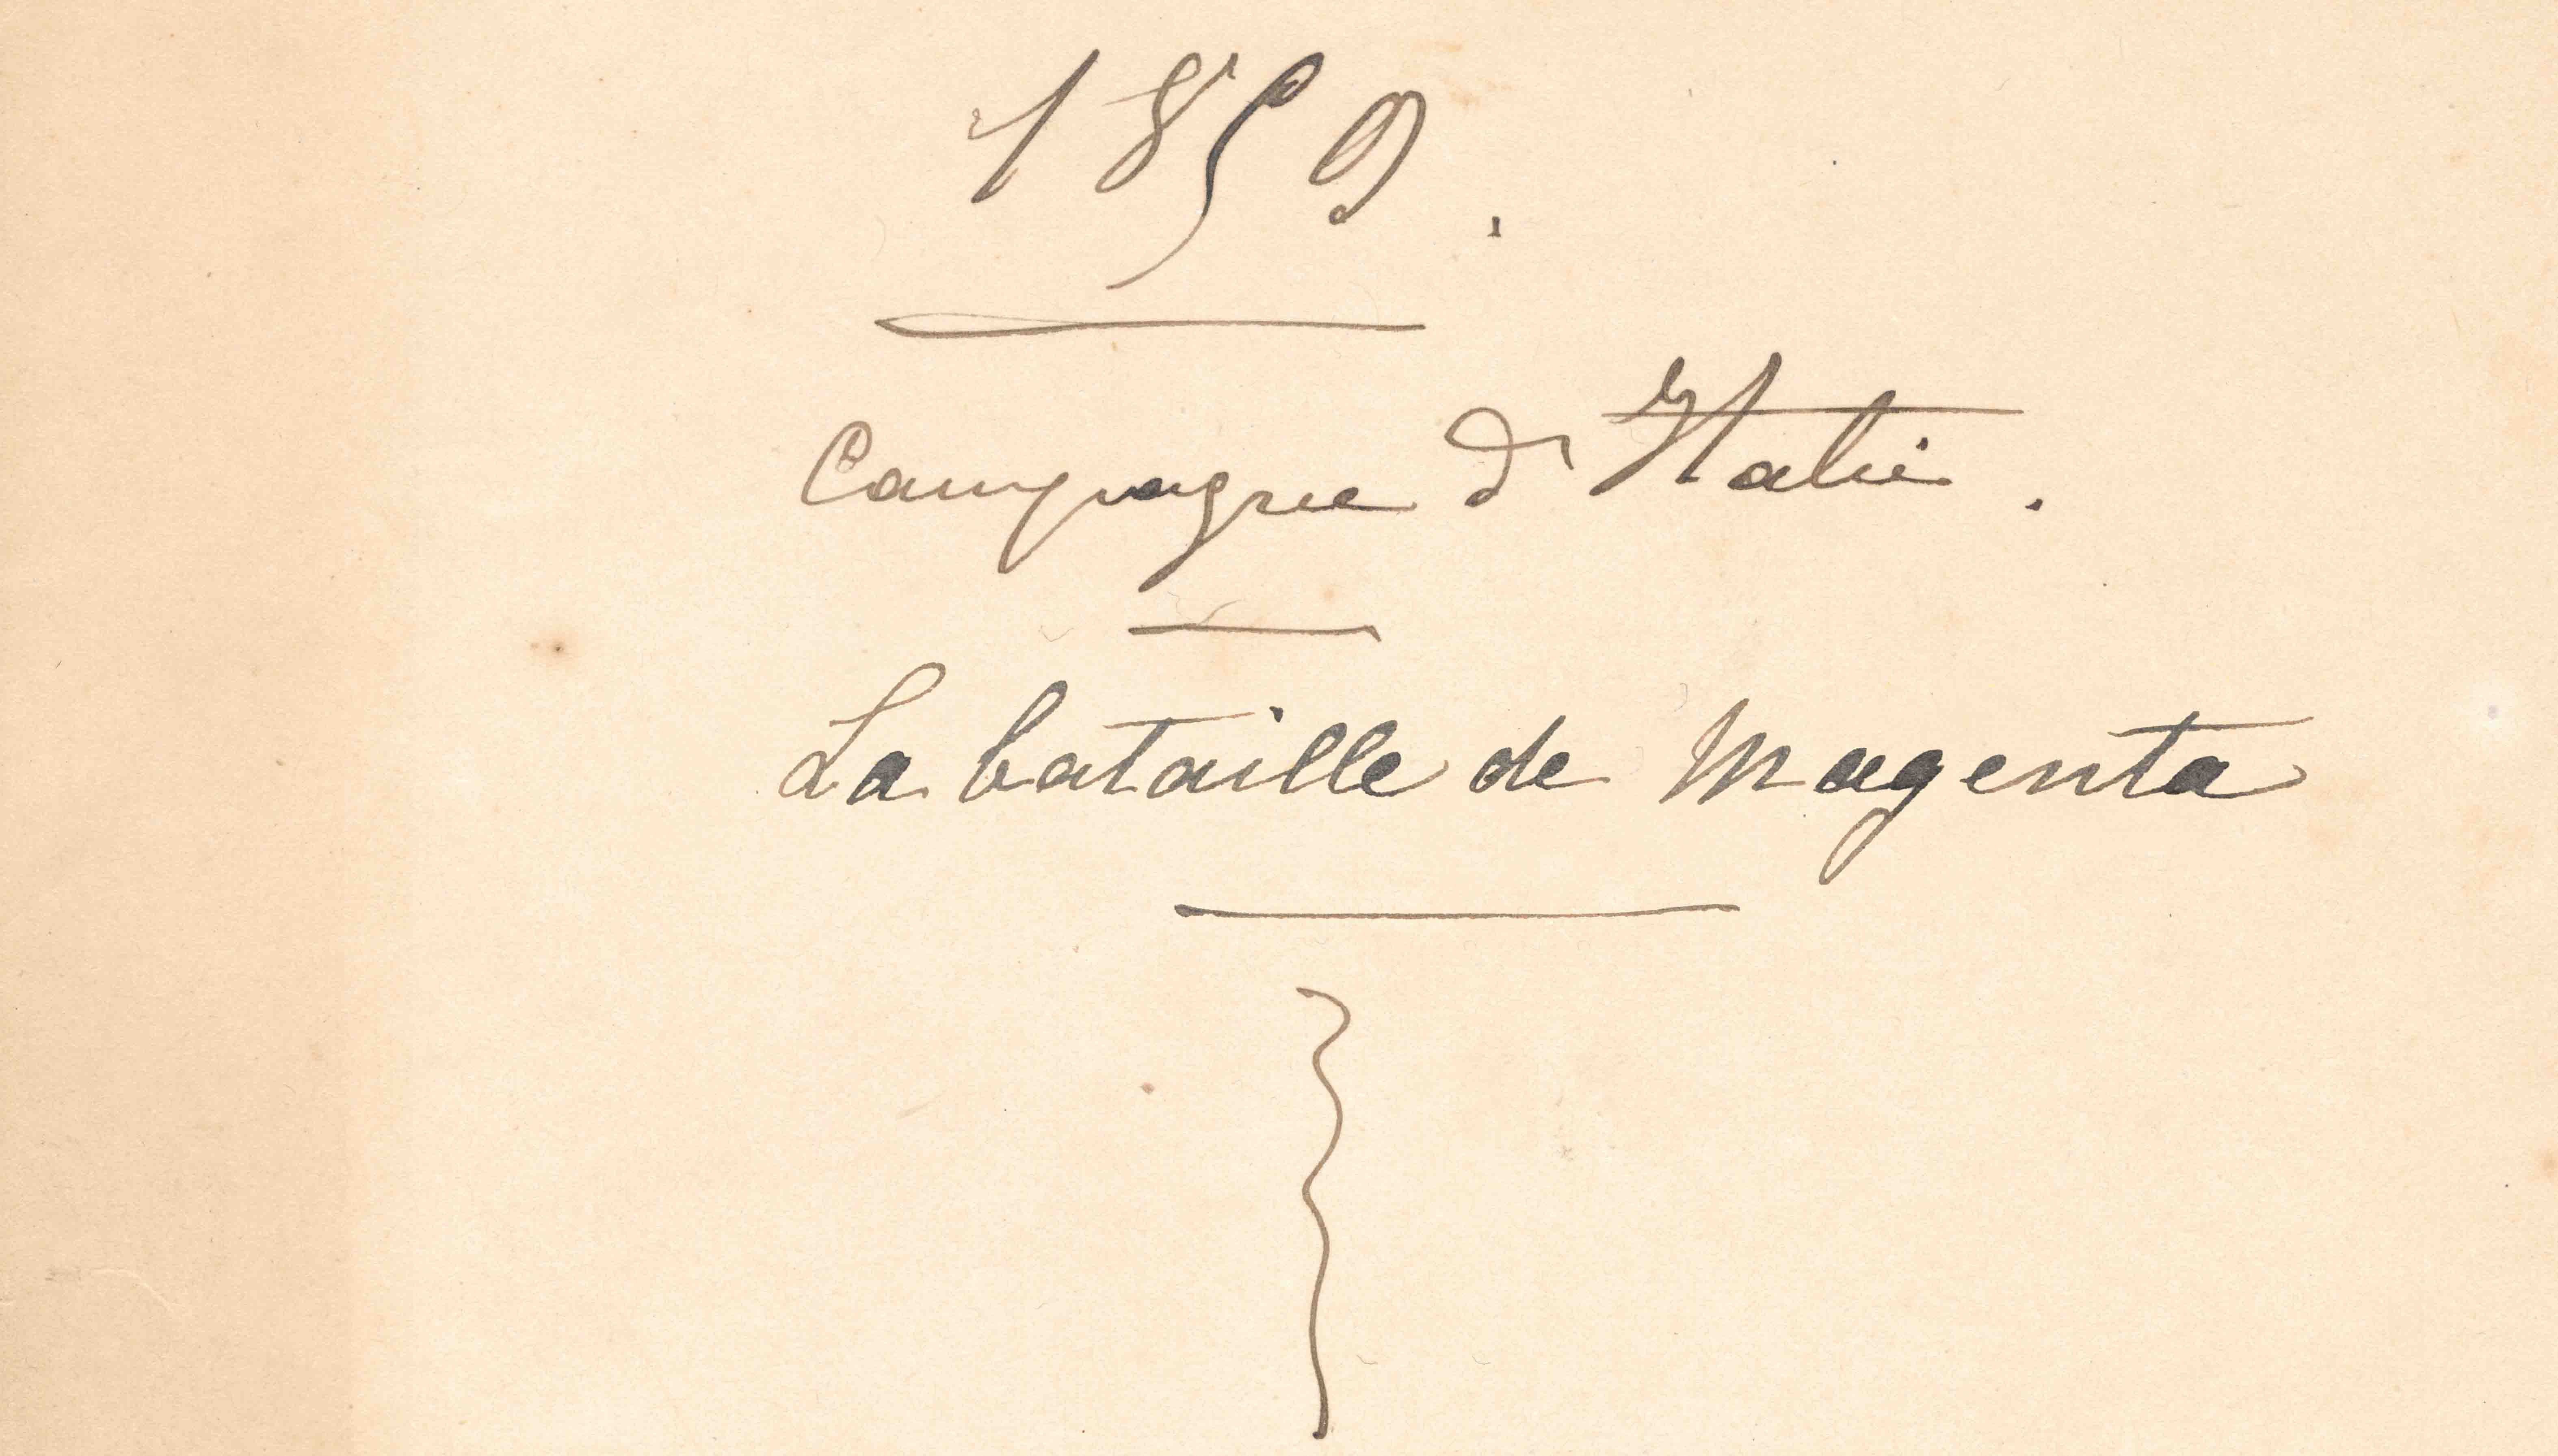 1859.
Campagne d'Italie.
La bataille de Magenta